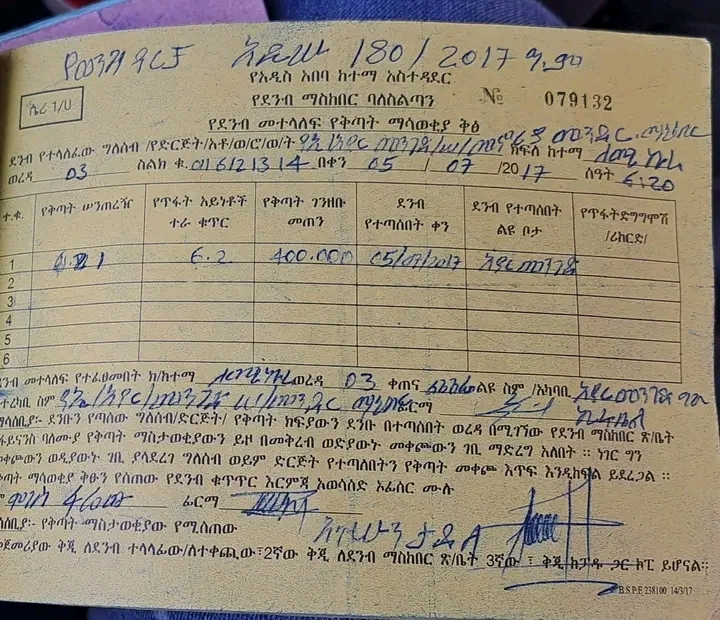 180/2017 ዓ.ም
የአዲስ አበባ ከተማ አስተዳደር
ሌሪ 1/ህ
የደንብ ማስከበር ባለስልጣን № 079132
የደንብ መተላለፍ የቅጣት ማሳወቂያ ቅፅ
ደንብ የተላለፈው ግለሰብ /የድርጅት/አቶ/ወ/ሮ/ወ/ት ክፍለ ከተማ ለሚ ኩራ
ወረዳ 03 ስልክ ቁ. 0116121314 በቀን 05 / 07 /2017 ሰዓት 6:20
ተ.ቁ. የቅጣት ሠንጠረዥ የጥፋት አይነቶች ተራ ቁጥር የቅጣት ገንዘቡ መጠን ደንብ የተጣሰበት ቀን ደንብ የተጣሰበት ልዩ ቦታ የጥፋት ድግግሞሽ /ሪከርድ/
1 6.2 400.000 05/07/2017 አየር መንገድ
2
3
4
5
6
ደንብ መተላለፍ የተፈፀመበት ክ/ከተማ ለሚ ኩራ ወረዳ 03 ቀጠና ልዩ ስም /አካባቢ አየር መንገድ
ስም ፊርማ
ማሳሰቢያ:- ደንቡን የጣሰው ግለሰብ/ድርጅት/ የቅጣት ክፍያውን ደንቡ በተጣሰበት ወረዳ በሚገኘው የደንብ ማስከበር ጽ/ቤት
ፋይናንስ ባለሙያ የቅጣት ማስታወቂያውን ይዞ በመቅረብ ወድያውኑ መቀጮውን ገቢ ማድረግ አለበት ። ነገር ግን
መቀጮውን ወዲያውኑ ገቢ ያላደረገ ግለሰብ ወይም ድርጅት የተጣለበትን የቅጣት መቀጮ እጥፍ እንዲከፍል ይደረጋል ።
ቅጣት ማሳወቂያ ቅፁን የሰጠው የደንብ ቁጥጥር እርምጃ አወሳሰድ ኦፊሰር ሙሉ
ፊርማ
ማሳሰቢያ:- የቅጣት ማስታወቂያው የሚሰጠው
የመጀመሪያው ቅጂ ለደንብ ተላላፊው/ለተቀጪው፣ 2ኛው ቅጂ ለደንብ ማስከበር ጽ/ቤት 3ኛው ፣ ቅጂ ከፓዱ ጋር ኮፒ ይሆናል።
B.S.P.E 238100 14/3/17